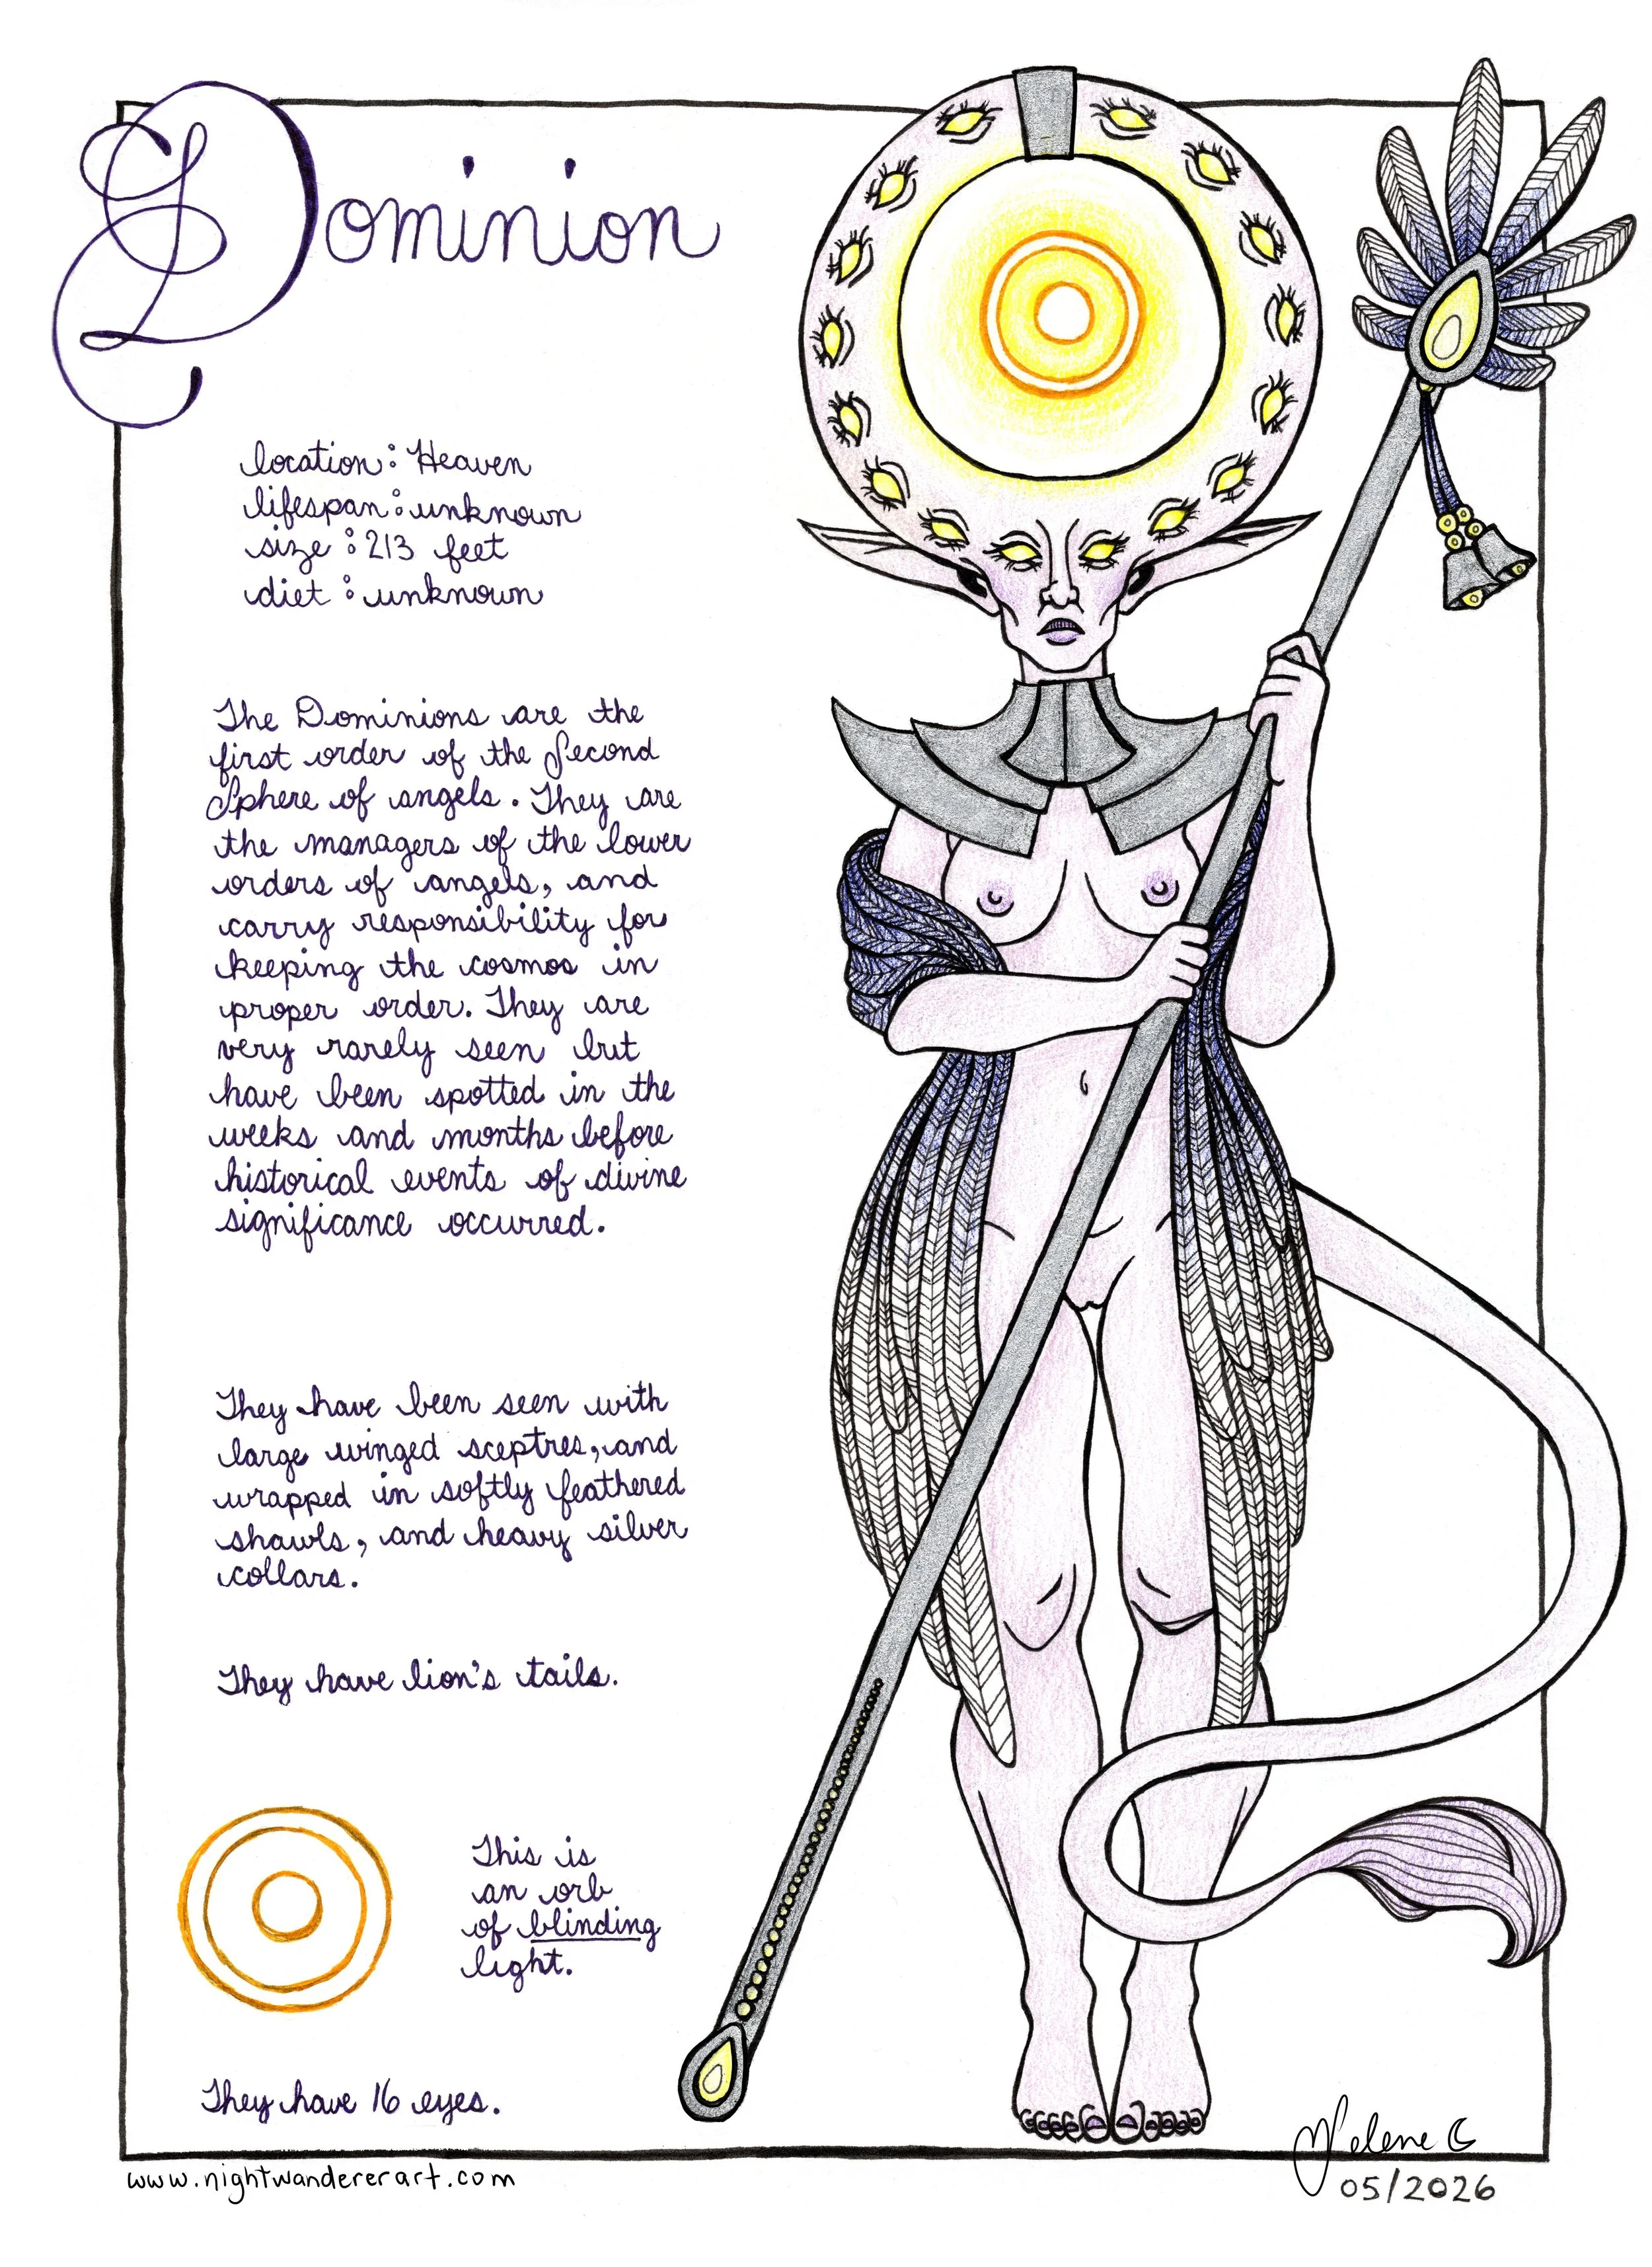 Dominion
location: Heaven
lifespan: unknown
size: 213 feet
diet: unknown
The Dominions are the
first order of the Second
Sphere of angels. They are
the managers of the lower
orders of angels, and
carry responsibility for
keeping the cosmos in
proper order. They are
very rarely seen but
have been spotted in the
weeks and months before
historical events of divine
significance occurred.
They have been seen with
large winged sceptres, and
wrapped in softly feathered
shawls, and heavy silver
collars.
They have lion's tails.
This is
an orb
of blinding
light.
They have 16 eyes.
www.nightwandererart.com
05/2026